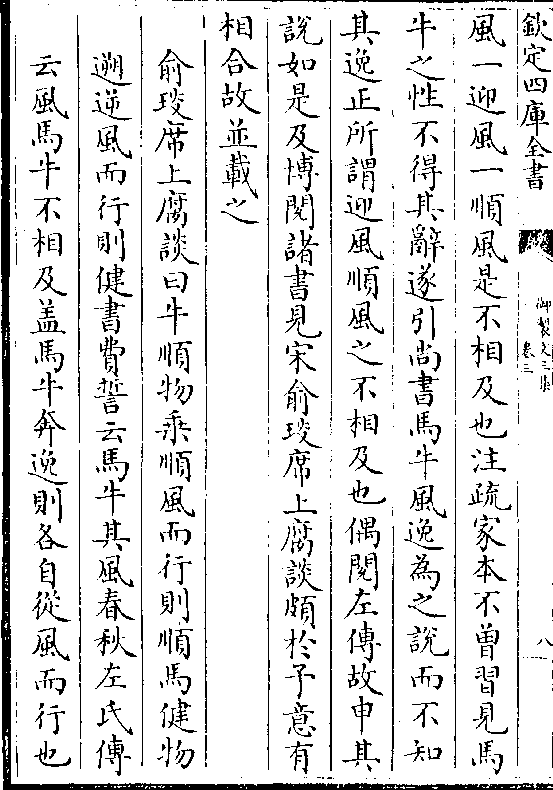 欽定四庫全書
御製文三集
卷三
八
風一迎風一順風是不相及也注疏家本不曾習見馬
牛之性不得其辭遂引尚書馬牛風逸為之說而不知
其逸正所謂迎風順風之不相及也偶閱左傳故申其
說如是及博閱諸書見宋俞琰席上腐談頗於予意有
相合故並載之
俞琰席上腐談曰牛順物乘順風而行則順馬健物
遡逆風而行則健書費誓云馬牛其風春秋左氏傳
云風馬牛不相及盖馬牛奔逸則各自從風而行也